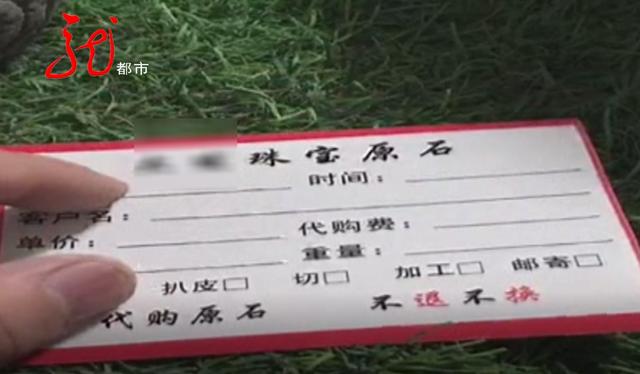 都市
珠宝原石
时间：
客户名：
代购费：
单价：
重量：
扒皮□ 切□ 加工□ 邮寄□
代购原石 不退不换